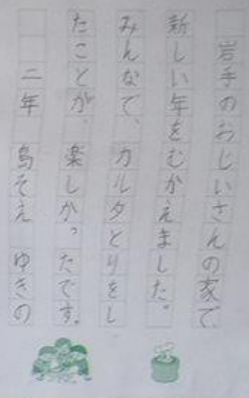 岩手のおじいさんの家で、
新しい年をむかえました。
みんなで、カルタとりをし
たことが、楽しかったです。
二年 鳥そえ ゆきの